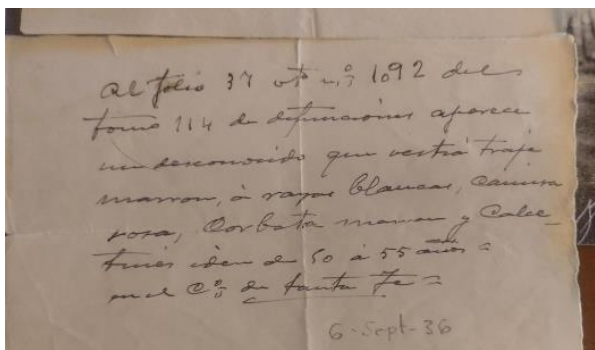 Al folio 37 vto nº 1092 del
tomo 114 de defunciones aparece
un desconocido que vestia traje
marron, á rayas blancas, camisa
rosa, Corbata marron y Calce_
tines idem de 50 á 55 años =
en el Cº de Santa Fe =
6-Sept-36